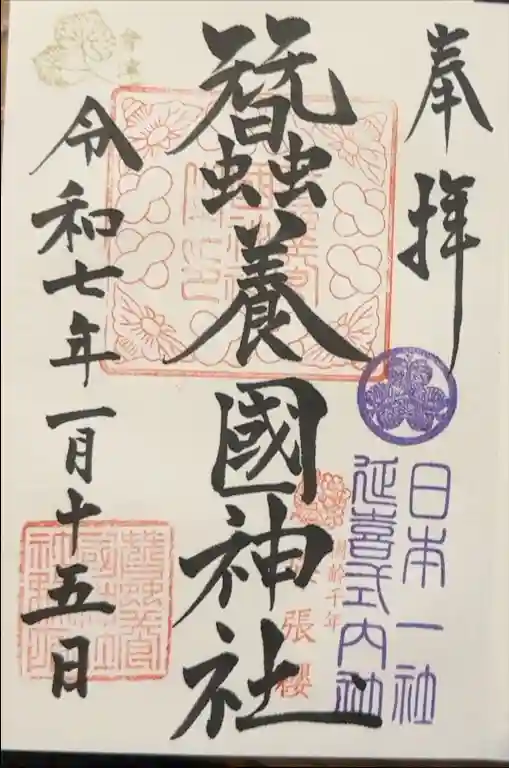 奉拝
日本一社
延喜式内社
蠶養國神社
樹齢千年
峰張櫻
令和七年一月十五日